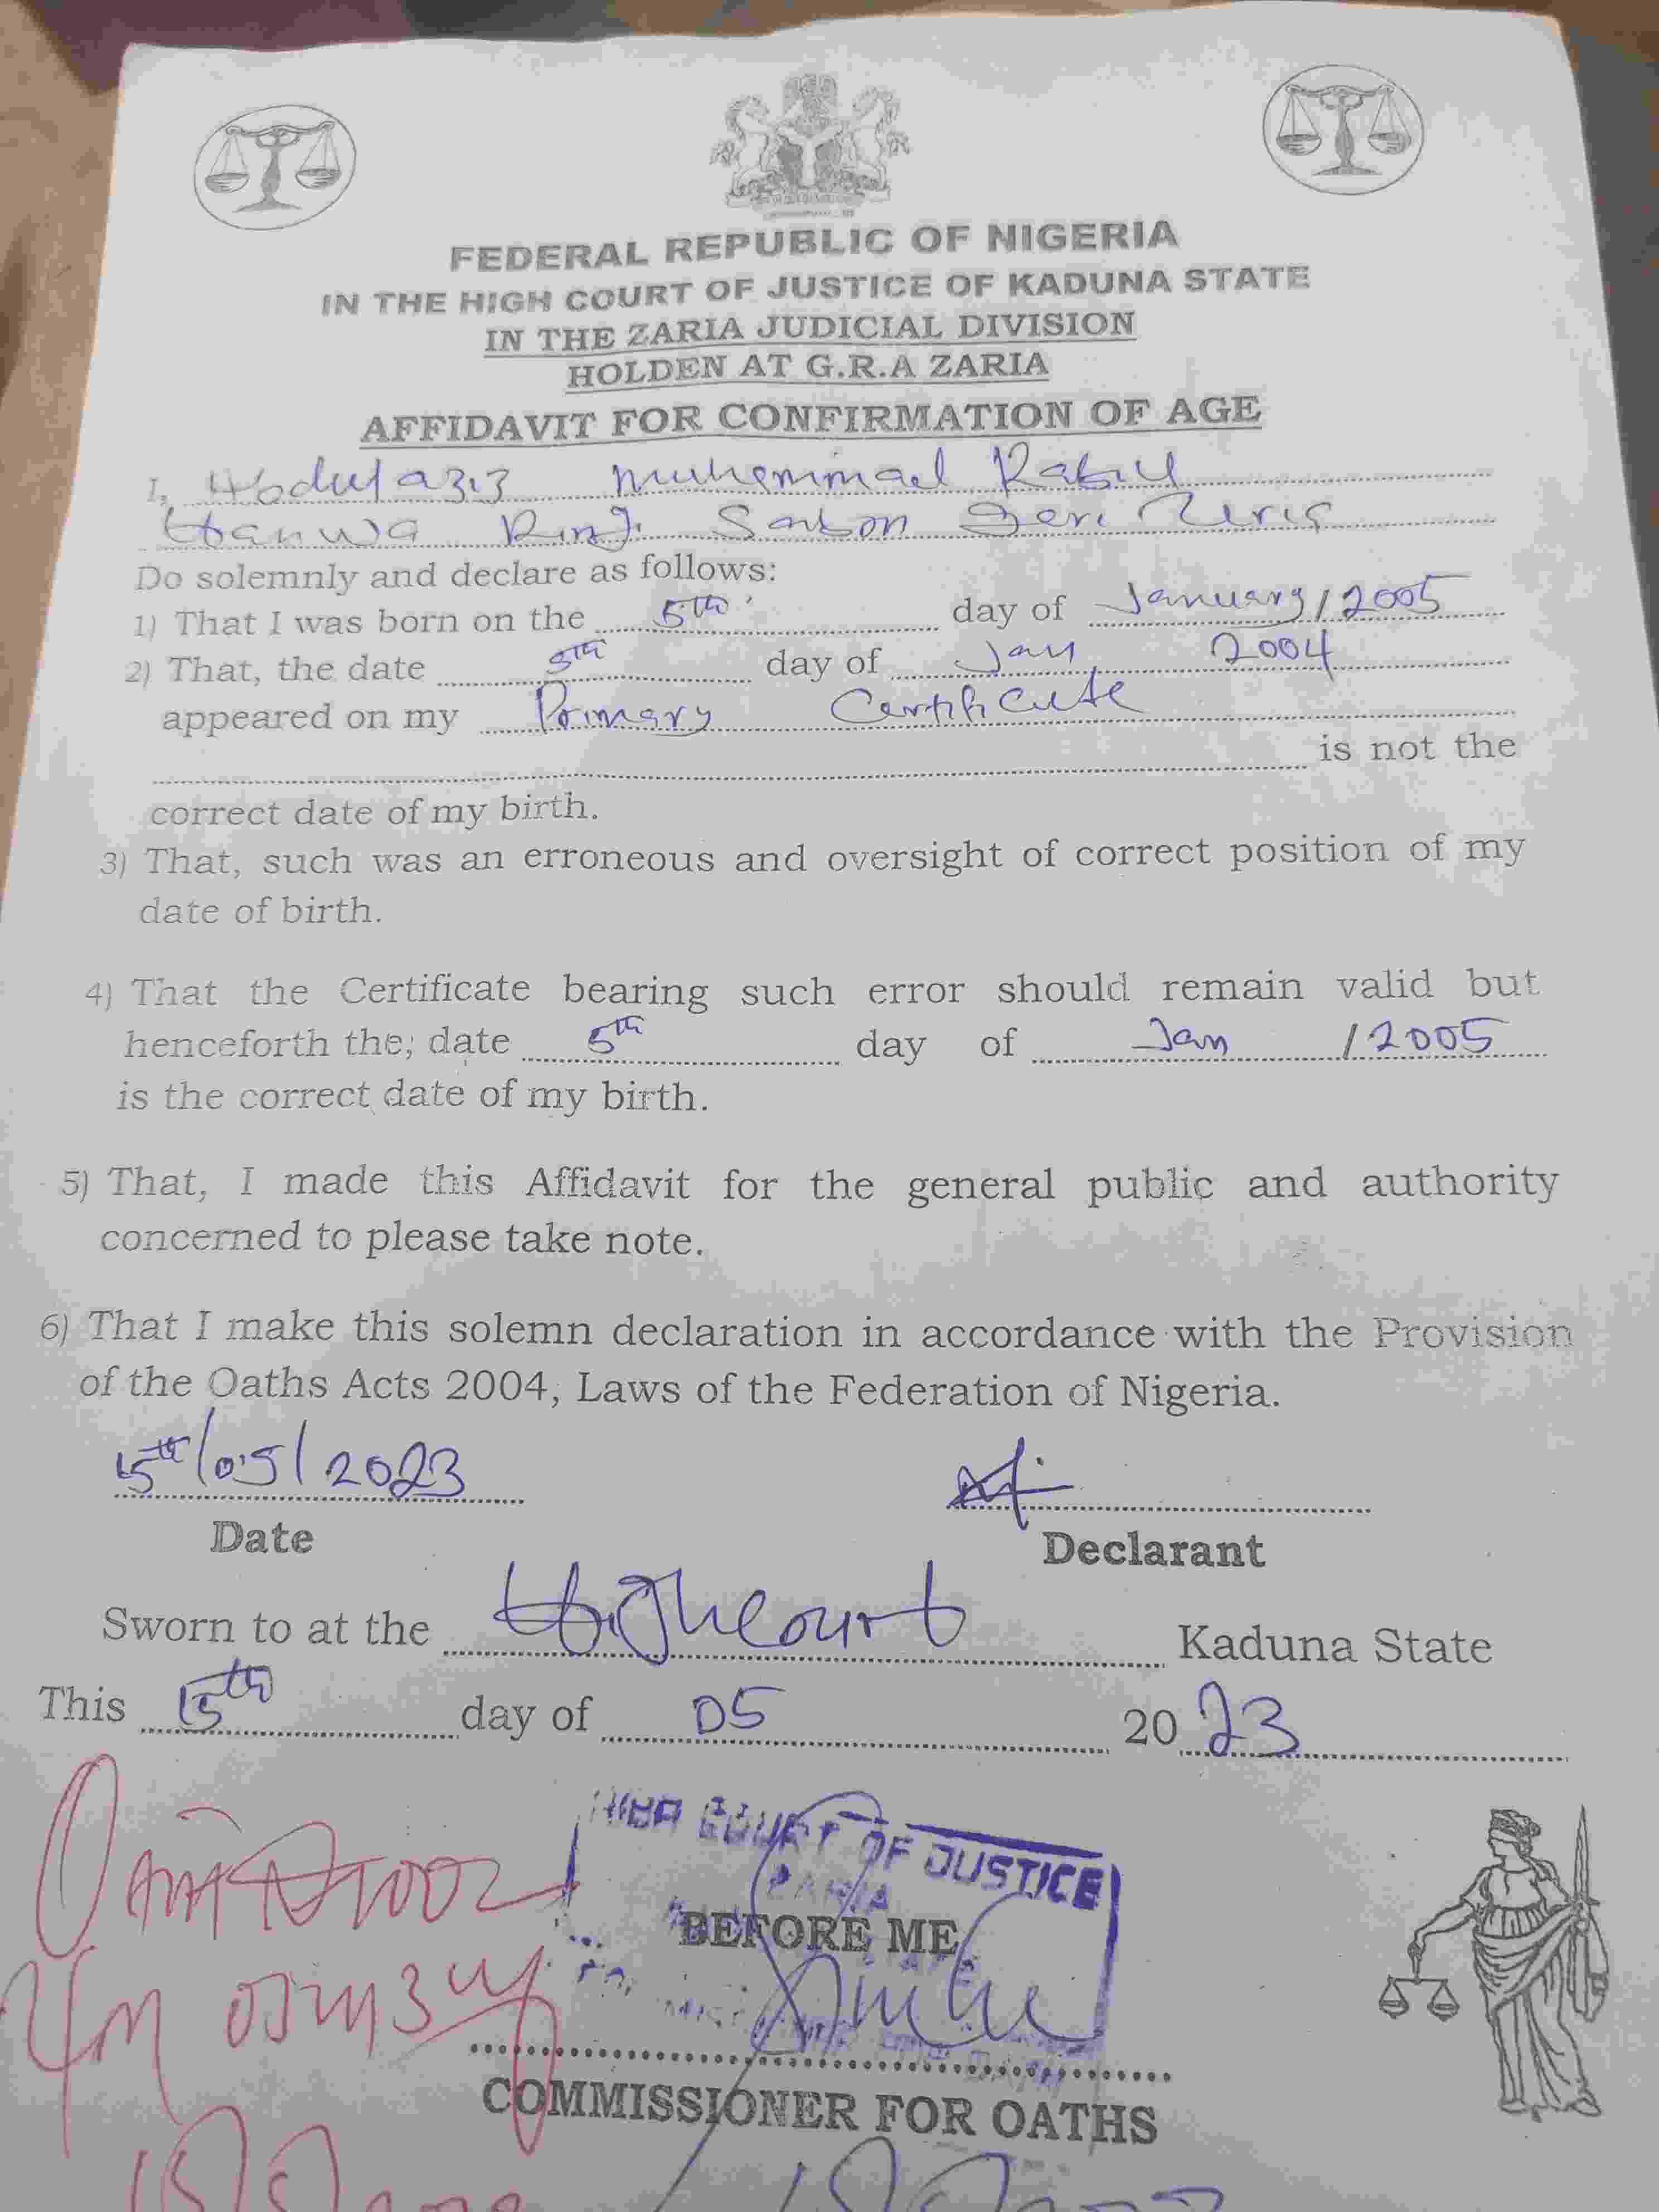 FEDERAL REPUBLIC OF NIGERIA
IN THE HIGH COURT OF JUSTICE OF KADUNA STATE
IN THE ZARIA JUDICIAL DIVISION
HOLDEN AT G.R.A ZARIA
AFFIDAVIT FOR CONFIRMATION OF AGE
I, Abdulaziz Muhammad Rabiu
Hanwa Sabon
Do solemnly and declare as follows:
1) That I was born on the 5th day of January / 2005
2) That, the date 5th day of Jan 2004
appeared on my Primary Certificate
is not the
correct date of my birth.
3) That, such was an erroneous and oversight of correct position of my
date of birth.
4) That the Certificate bearing such error should remain valid but
henceforth the; date 5th day of Jan / 2005
is the correct date of my birth.
5) That, I made this Affidavit for the general public and authority
concerned to please take note.
6) That I make this solemn declaration in accordance with the Provision
of the Oaths Acts 2004, Laws of the Federation of Nigeria.
/05/2023
Date
Declarant
Sworn to at the Highcourt Kaduna State
This day of 05 2023
HIGH COURT OF JUSTICE
ZARIA
BEFORE ME
COMMISSIONER FOR OATHS